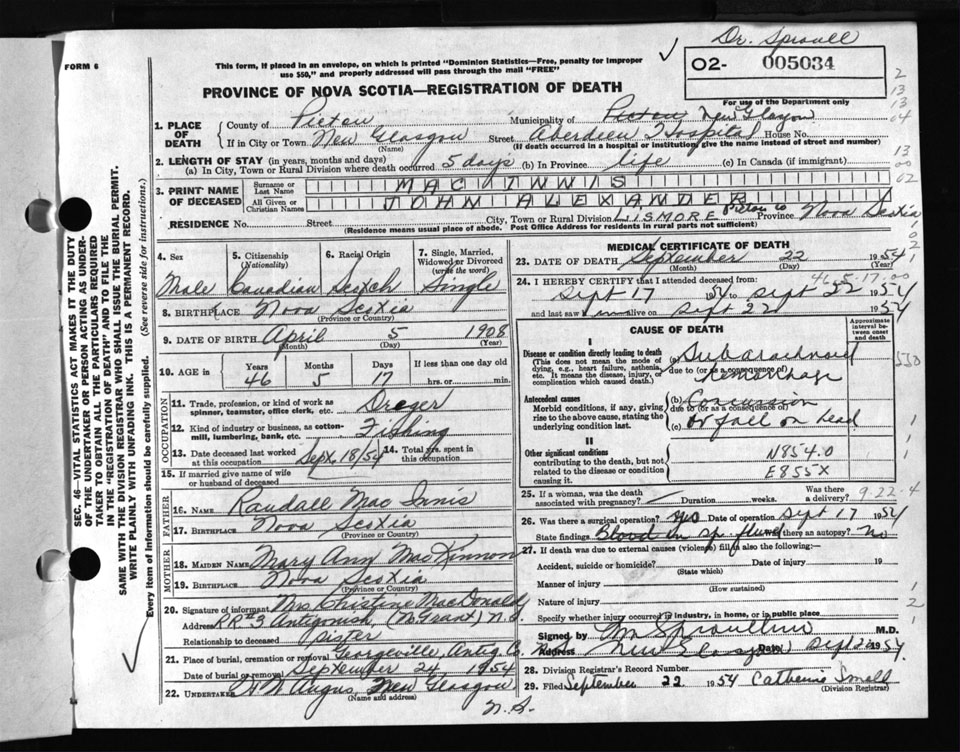 Dr. Sproull
FORM 6
This form, if placed in an envelope, on which is printed "Dominion Statistics—Free, penalty for improper
use $50," and properly addressed will pass through the mail "FREE"
02- 005034
PROVINCE OF NOVA SCOTIA—REGISTRATION OF DEATH
For use of the Department only
1. PLACE OF DEATH
County of Pictou Municipality of Pictou New Glasgow
If in City or Town New Glasgow Street Aberdeen Hospital House No.
(Name) (If death occurred in a hospital or institution, give name instead of street and number)
2. LENGTH OF STAY (in years, months and days)
(a) In City, Town or Rural Division where death occurred 5 days (b) In Province life (c) In Canada (if immigrant)
3. PRINT NAME OF DECEASED
Surname or Last Name MAC INNIS
All Given or Christian Names JOHN ALEXANDER
RESIDENCE No. Street City, Town or Rural Division LISMORE Pictou Co Province Nova Scotia
(Residence means usual place of abode. Post Office Address for residents in rural parts not sufficient)
4. Sex Male
5. Citizenship (Nationality) Canadian
6. Racial Origin Scotch
7. Single, Married, Widowed or Divorced (write the word) Single
8. BIRTHPLACE Nova Scotia
(Province or Country)
9. DATE OF BIRTH April 5 1908
(Month) (Day) (Year)
10. AGE in Years 46 Months 5 Days 17 If less than one day old hrs. or min.
OCCUPATION
11. Trade, profession, or kind of work as spinner, teamster, office clerk, etc.
12. Kind of industry or business, as cotton-mill, lumbering, bank, etc. Fishing
13. Date deceased last worked at this occupation Sept. 18/54 14. Total yrs. spent in this occupation
15. If married give name of wife or husband of deceased
FATHER
16. Name Randall Mac Innis
17. Birthplace Nova Scotia
(Province or Country)
MOTHER
18. MAIDEN NAME Mary Ann MacKinnon
19. Birthplace Nova Scotia
(Province or Country)
20. Signature of informant Mrs Christine MacDonald
Address RR #3 Antigonish, N.S.
Relationship to deceased sister
21. Place of burial, cremation or removal Georgeville, Antig. Co.
Date of burial or removal September 24 1954
22. UNDERTAKER Angus, New Glasgow
(Name and address)
N.S.
MEDICAL CERTIFICATE OF DEATH
23. DATE OF DEATH September 22 1954
(Month) (Day) (Year)
46-5-17-00
24. I HEREBY CERTIFY that I attended deceased from:
Sept 17 1954 to Sept 22 1954
and last saw alive on Sept 22 1954
CAUSE OF DEATH
Approximate interval between onset and death
I
Disease or condition directly leading to death
(This does not mean the mode of dying, e.g., heart failure, asthenia, etc. It means the disease, injury, or complication which caused death.)
(a) Subarachnoid
due to (or as a consequence of)
hemorrhage
Antecedent causes
Morbid conditions, if any, giving rise to the above cause, stating the underlying condition last.
(b) Concussion
due to (or as a consequence of)
(c) or fall on head
II
Other significant conditions
contributing to the death, but not related to the disease or condition causing it.
N854.0
E855X
25. If a woman, was the death associated with pregnancy? Duration weeks. Was there a delivery?
9-22-4
26. Was there a surgical operation? yes Date of operation Sept 17 1954
State findings Blood in sp. fluid Was there an autopsy? No
27. If death was due to external causes (violence) fill in also the following:—
Accident, suicide or homicide? Date of injury 19
(State which)
Manner of injury
(How sustained)
Nature of injury
Specify whether injury occurred in industry, in home, or in public place
Signed by M.D.
Address New Glasgow Date Sept 22 1954
28. Division Registrar's Record Number
29. Filed September 22 1954 Catherine Small
(Division Registrar)
SEC. 46—VITAL STATISTICS ACT MAKES IT THE DUTY
OF THE UNDERTAKER OR PERSON ACTING AS UNDER-
TAKER TO OBTAIN ALL THE PARTICULARS REQUIRED
IN THE "REGISTRATION OF DEATH" AND TO FILE THE
SAME WITH THE DIVISION REGISTRAR WHO SHALL ISSUE THE BURIAL PERMIT.
WRITE PLAINLY WITH UNFADING INK. THIS IS A PERMANENT RECORD.
Every item of information should be carefully supplied. (See reverse side for instructions.)